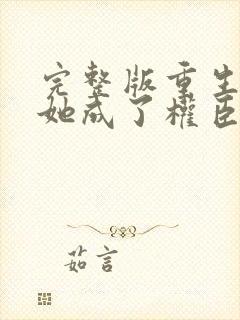 完整版重生
她成了權臣
茹言